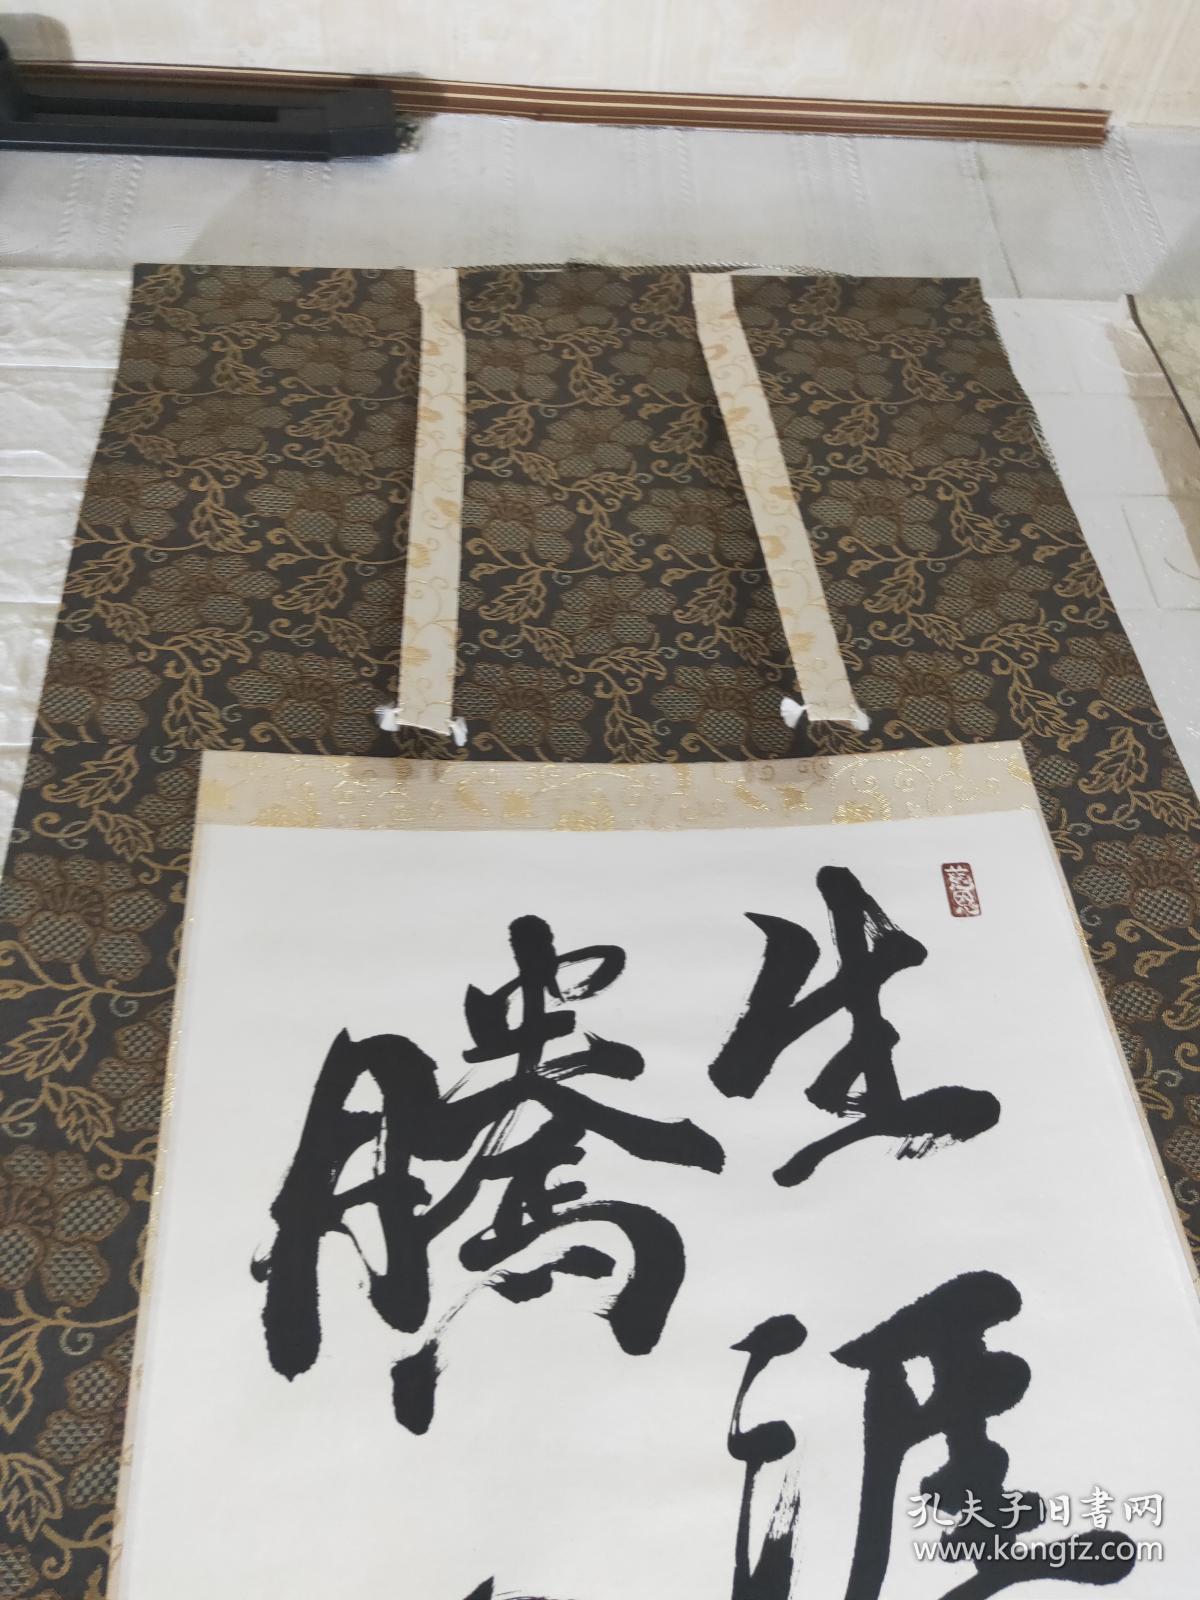 生涯
騰
孔夫子旧書网
www.kongfz.com